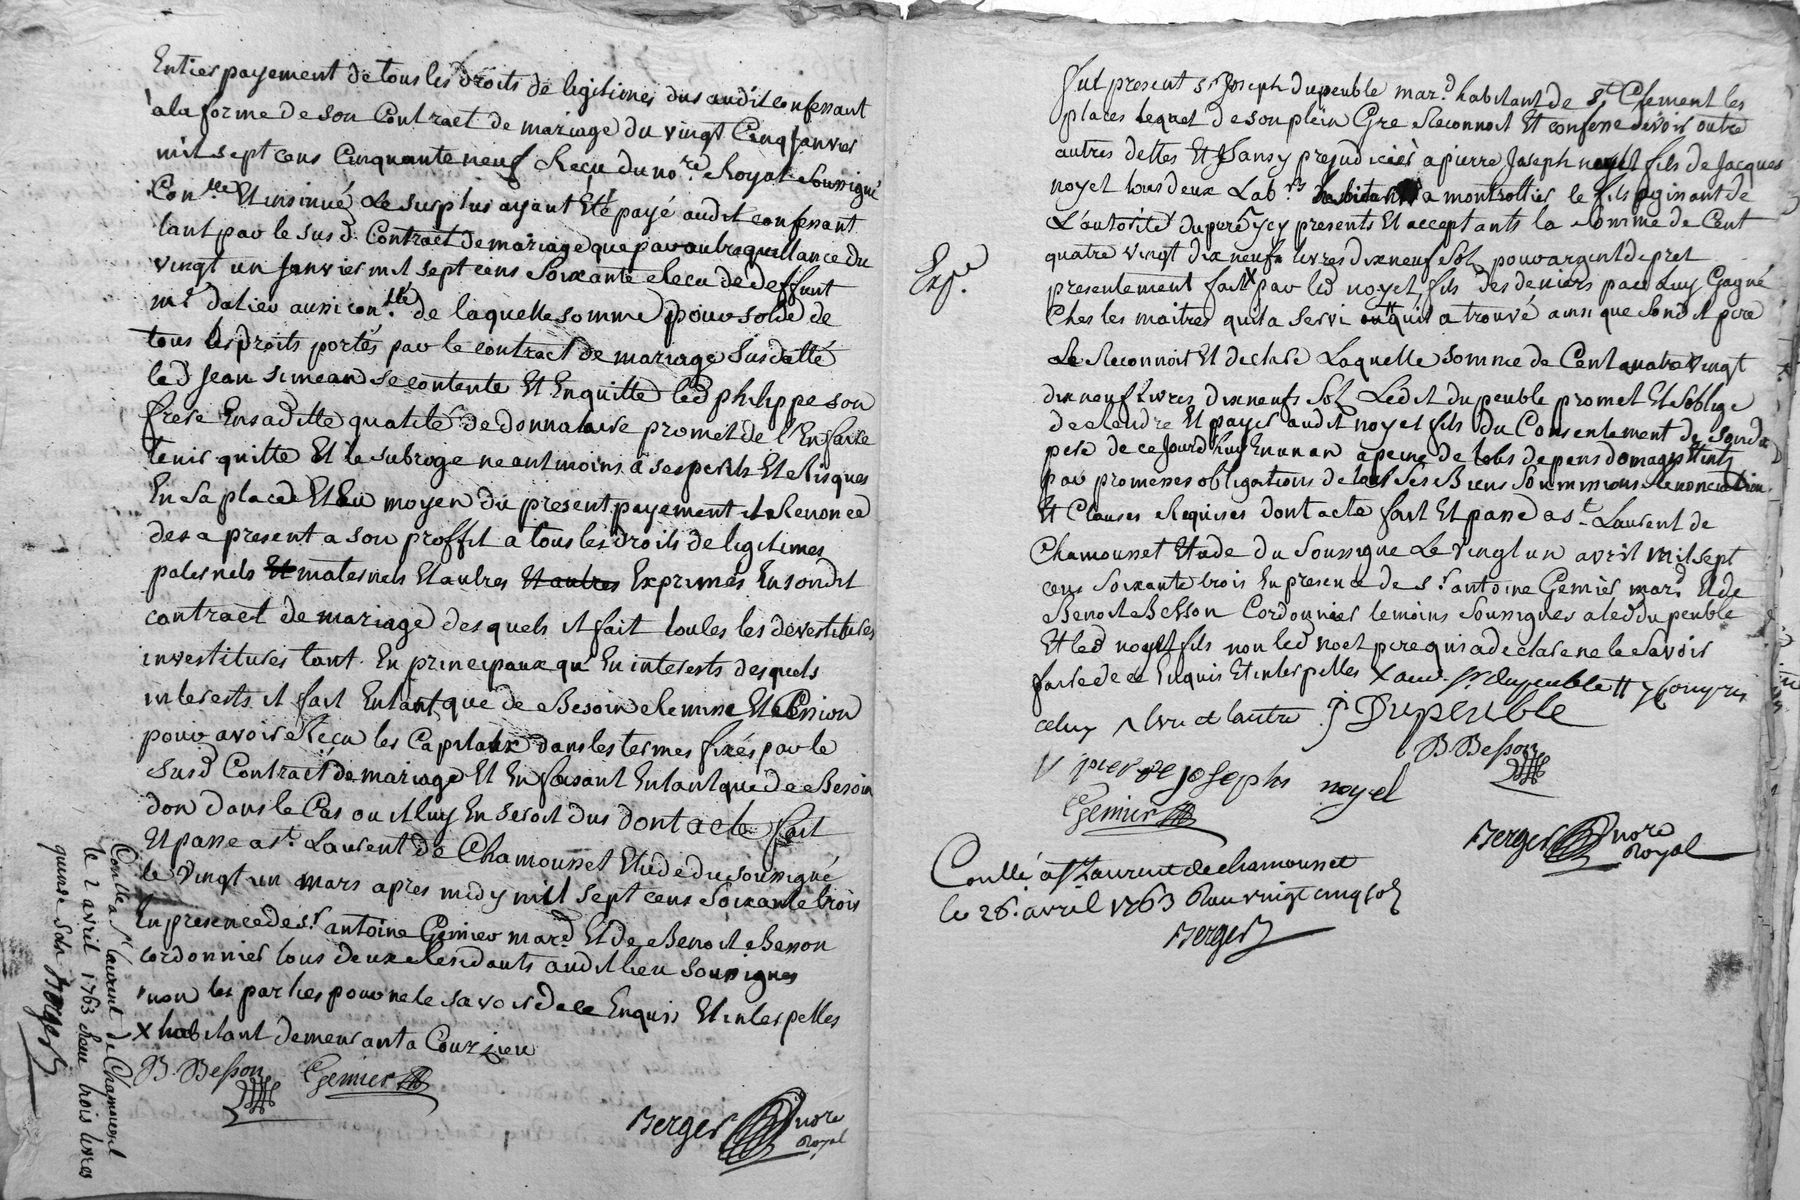 Entier payement de tous les droits de legitimes dus audit confessant
a la forme de son Contract de mariage du vingt Cinq Janvier
mil sept cens Cinquante neuf Reçu du no.re Royal Soussigné
Con.llé Et insinué Le surplus ayant Eté payé audit confessant
tant par le susd. Contract de mariage que par autre quittance du
vingt un Janvier mil sept cens Soixante Recu de deffunt
m.e dalieu aussi con.llé de laquelle somme pour solde de
tous les droits portés par le contract de mariage Susdatté
led Jean simean se contente Et Enquitte led philippe son
frere En saditte qualité de donnataire promet de l'En faire
tenir quitte Et le subroge neantmoins a ses perils Et Risques
En sa place Et Eu moyen du present payement il Renonce
des a present a son proffit a tous les droits de legitimes
paternels Et maternels Et autres Et autres Exprimés En sondit
contract de mariage desquels il fait toutes les devestitures
investitures tant En principaux qu'En interests desquels
interests il fait Entant que de Besoin Remise Et Cession
pour avoir Reçu les Capitaux dans les termes fixés par le
susd Contract de mariage Et En faisant Entant que de Besoin
don dans le Cas ou il luy En seroit dus dont acte fait
Et passe a s.t Laurent de Chamousset Etude du soussigné
le vingt un mars apres midy mil sept cens soixante trois
En presence de s.r antoine Gemier mar.d Et de Benoit Besson
cordonnier tous deux Residants audit lieu soussignes
non les parties pour ne le savoir de ce Enquis Et interpelles
X habitant demeurant a Courzieu
B. Besson Gemier
Berger no.re Royal
Conllé a s.t laurent de Chamousset
le 2 avril 1763 Reçu trois livres
quinse sols Berger
fut present s.r Joseph dupeuble mar.d habitant de s.t Clement les
places lequel de son plein Gre Reconnoit Et confesse devoir outre
autres dettes Et sans y prejudicier a pierre Joseph noyel fils de Jacques
noyel tous deux Lab.rs habitants a montrottier le fils agissant de
L'autorité du pere icy presents Et acceptants la somme de Cent
quatre vingt dix neufs livres dix neuf sol pour argent de pret
Exp.ée
presentement fait X par led noyel fils des deniers par Luy Gagné
Ches les maitres qu'il a servi ou qu'il a trouvé ainsi que sondit pere
Le Reconnoit Et declare Laquelle somme de Cent quatre vingt
dix neuf Livres dix neufs sol Ledit dupeuble promet Et s'oblige
de Rendre Et payer audit noyel fils du Consentement de sond
pere de ce Jourd'huy En un an a peine de tous depens domages Ints
par promesses obligations de tous ses Biens Soumissions Renonciations
Et Clauses Requises dont acte fait Et passé a s.t Laurent de
Chamousset Etude du Soussigne Le vingt un avril mil sept
cens Soixante trois En presence de s.r antoine Gemier mar.d Et de
Benoit Besson Cordonnier temoins soussignes a led dupeuble
Et led noyel fils non led noel pere qui a declare ne le savoir
faire de ce Enquis Et interpelles X aud s.r dupeuble
celuy l'un et l'autre J Dupeuble
B Besson
pierre josephs noyel
Gemier
Berger no.re Royal
Conllé a s.t Laurent de chamousset
le 26. avril 1763 Reçu vingt cinq sols
Berger